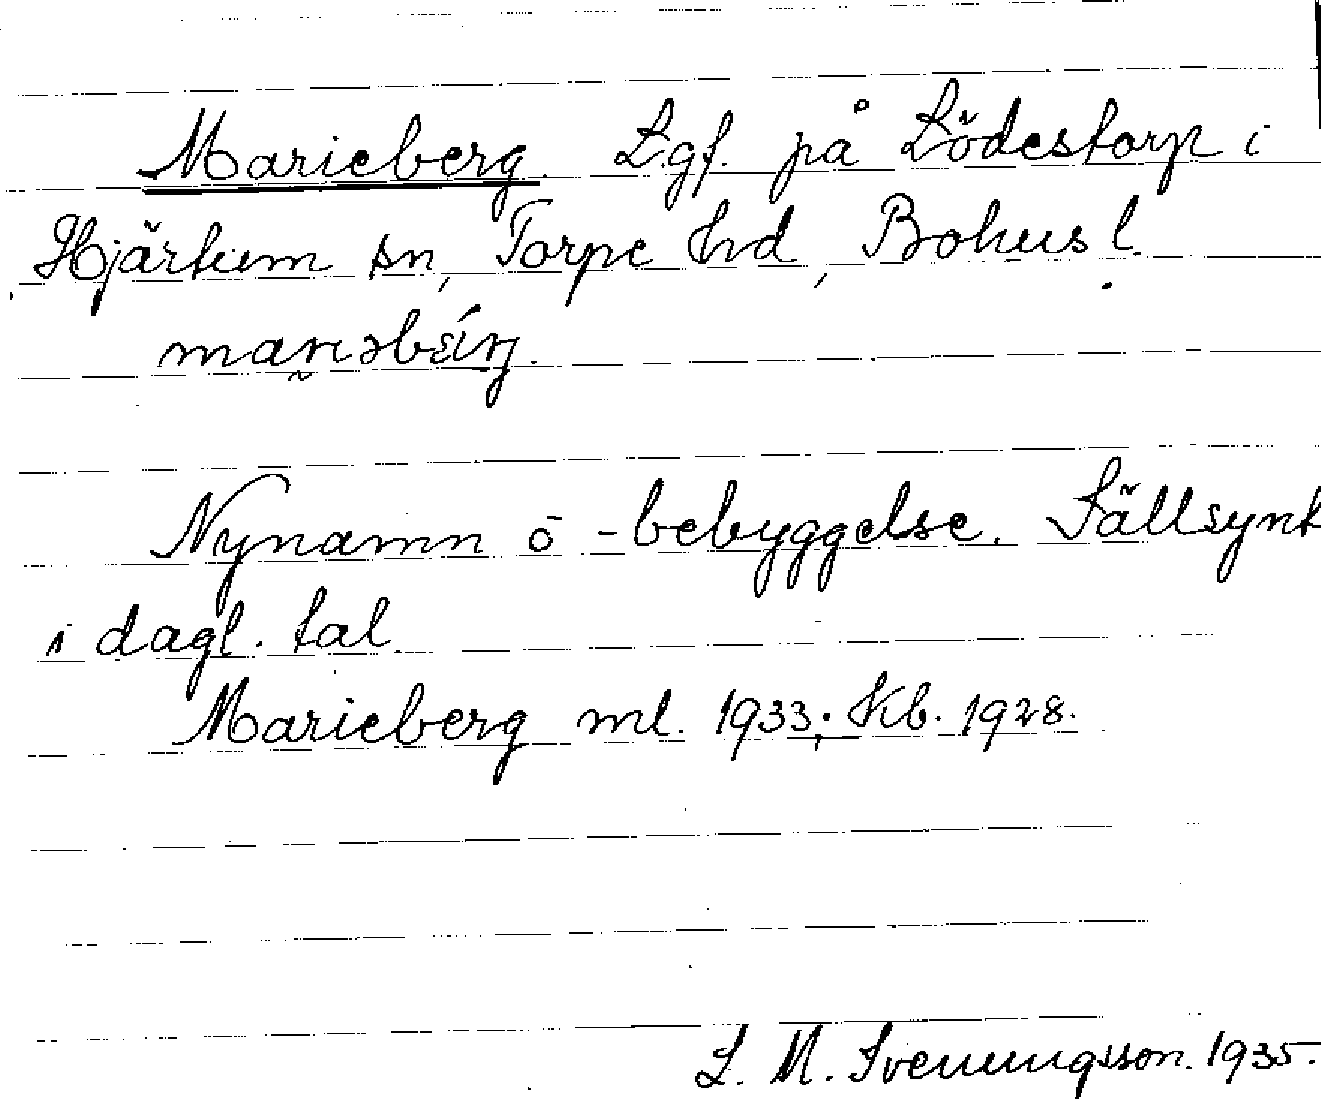 Marieberg. Lgf. på Lödestorp i
Hjärtum sn, Torpe hd, Bohusl.
Nynamn o -bebyggelse. Sällsynt
i dagl. tal.
Marieberg ml. 1933; Kb. 1928.
L. M. Svenungsson. 1935.